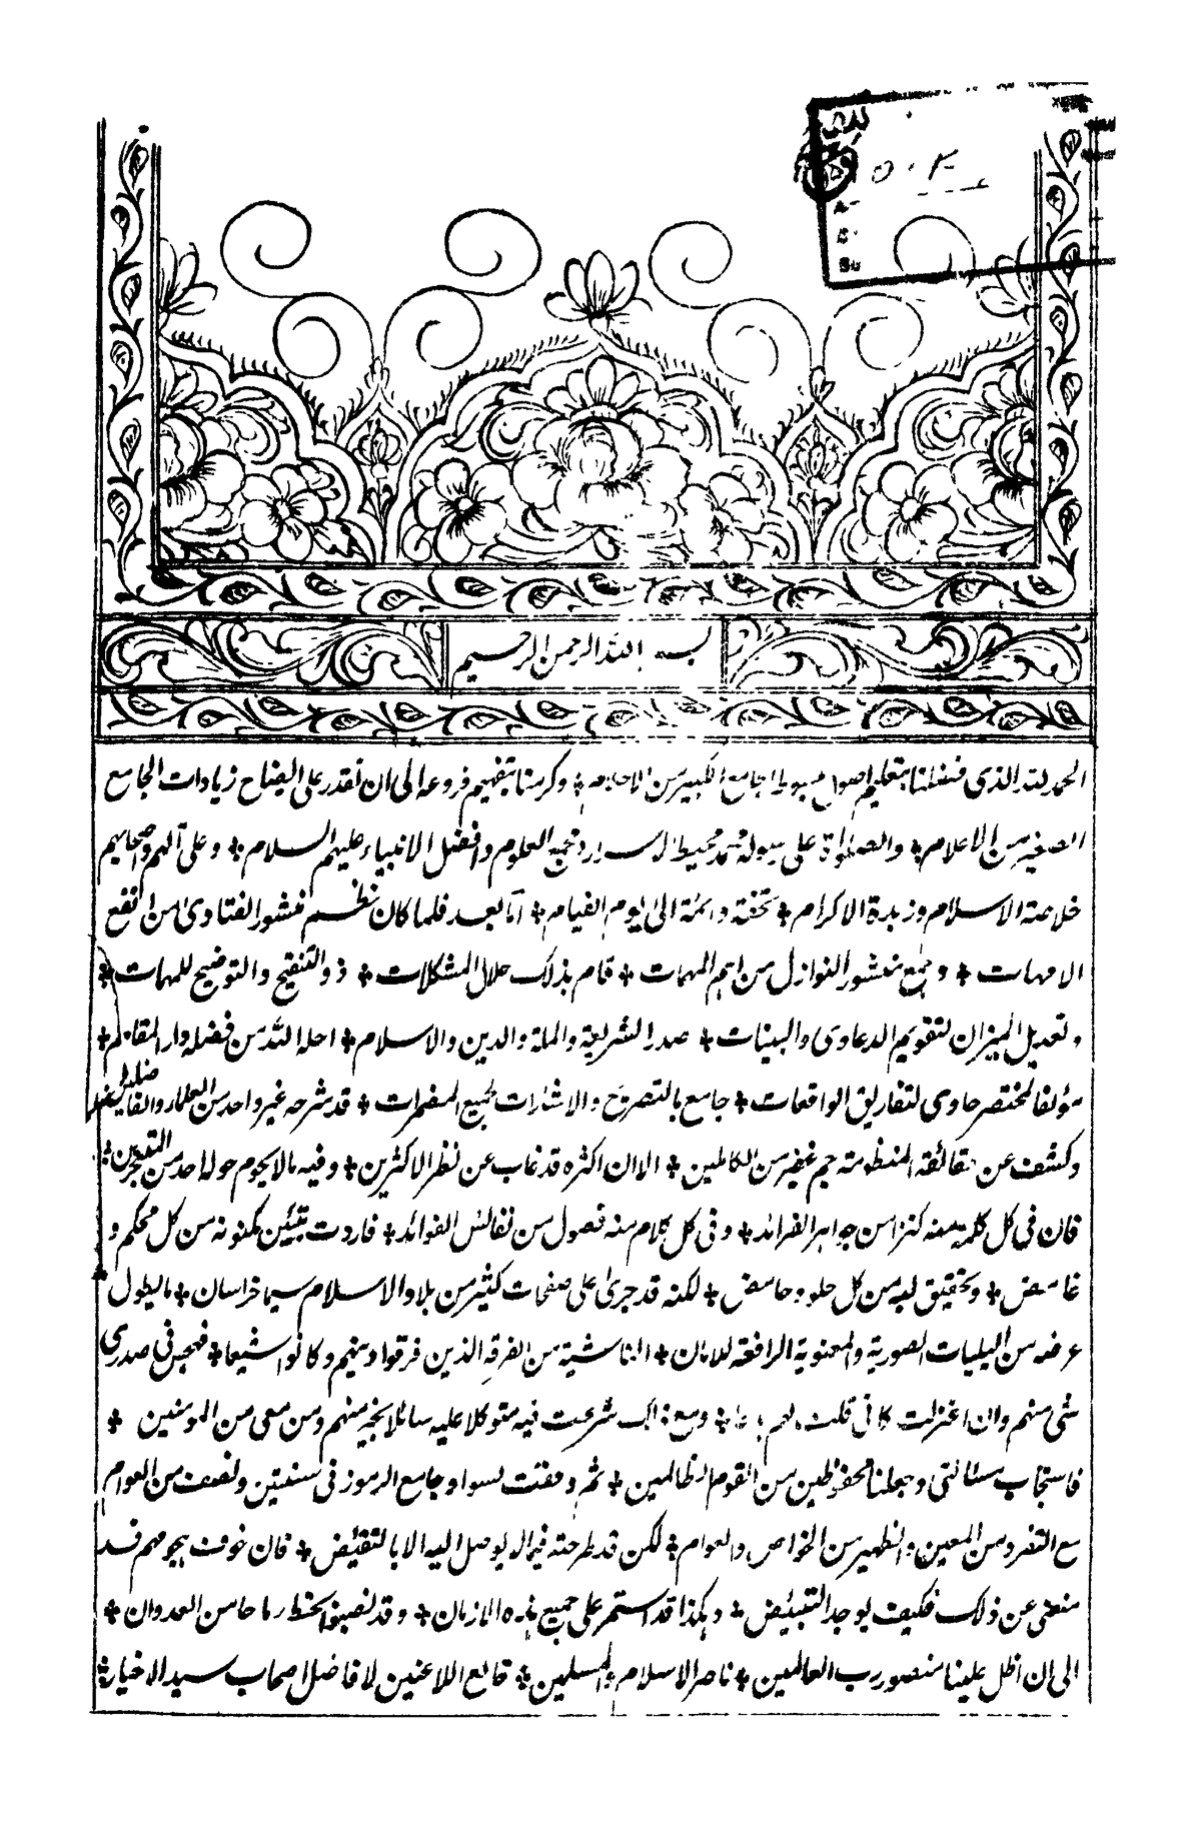 بسم الله الرحمن الرحيم
الحمد لله الذى فضلنا بتعليم اصول مبسوط الجامع الكبير من الاحكام * وكرمنا بتفهيم فروعه الى ان نقدر على ايضاح زيادات الجامع
الصغير من الاعلام * والصلوة على رسوله محمد محيط الاسرار ذخيرة العلوم وافضل الانبياء عليهم السلام * وعلى آلهم واصحابهم
خلاصة الاسلام وزبدة الاكرام * تحفة دائمة الى يوم القيام * اما بعد فلما كان نظم منشور الفتاوى من انفع
الامهات * وجمع منشور النوازل من اهم المهمات * قام بذلك حلال المشكلات * ذو التنقيح والتوضيح للمهمات *
وتعديل الميزان لتقويم الدعاوى والبينات * صدر الشريعة والملة والدين والاسلام * احله الله من فضله دار المقام *
مؤلفا لمختصر حاوى لتفاريق الواقعات * جامع بالتصريح والاشارات لجميع المضمرات * قد شرحه غير واحد من العلماء والفضلاء
وكشف عن حقائقه المنظومة جم غفير من الكاملين * الا ان اكثره قد غاب عن نظر الاكثرين * وفيه ما لا يحوم حوله احد من المتبحرين *
فان فى كل كلمة منه كنزا من جواهر الفرائد * وفى كل كلام منه فصول من نفائس الفوائد * فاردت تبيين مكنونه من كل محكم و
غامض * وتحقيق لبه من كل حلو وحامض * لكنه قد جرى على صفحات كثير من بلاد الاسلام سيما خراسان * ما يطول
عرضه من البليات الصورية والمعنوية الرافعة للامان * الناشية من الفرقة الذين فرقوا دينهم وكانوا شيعا * فهجس فى صدرى
شئ منهم وان اعتزلت كانى قلت لهم * ومع ذلك شرعت فيه متوكلا عليه سائلا نجي منهم ومن معى من المومنين *
فاستجاب مسألتى وجعلنا محفوظين من القوم الظالمين * ثم وفقت لسواد جامع الرموز فى سنتين ونصف من العوام
مع التفرد من المعين والظهير من الخواص والعوام * لكن قد طرحته فيما لا يوصل اليه الا بالتقئيض * فان خوف هجومهم قد
منعنى عن ذلك فكيف يوجد التبييض * وهكذا قد استمر على جميع هذه الازمان * وقد نصبوا لخطه رماحا من العدوان *
الى ان اظل علينا منصور رب العالمين * ناصر الاسلام والمسلمين * قامع اللاعنين لافاضل اصحاب سيد الاخيار *